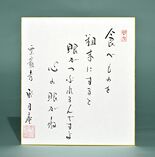 食べものを
粗末にすると
眼がつぶれるんですよ
心の眼がね